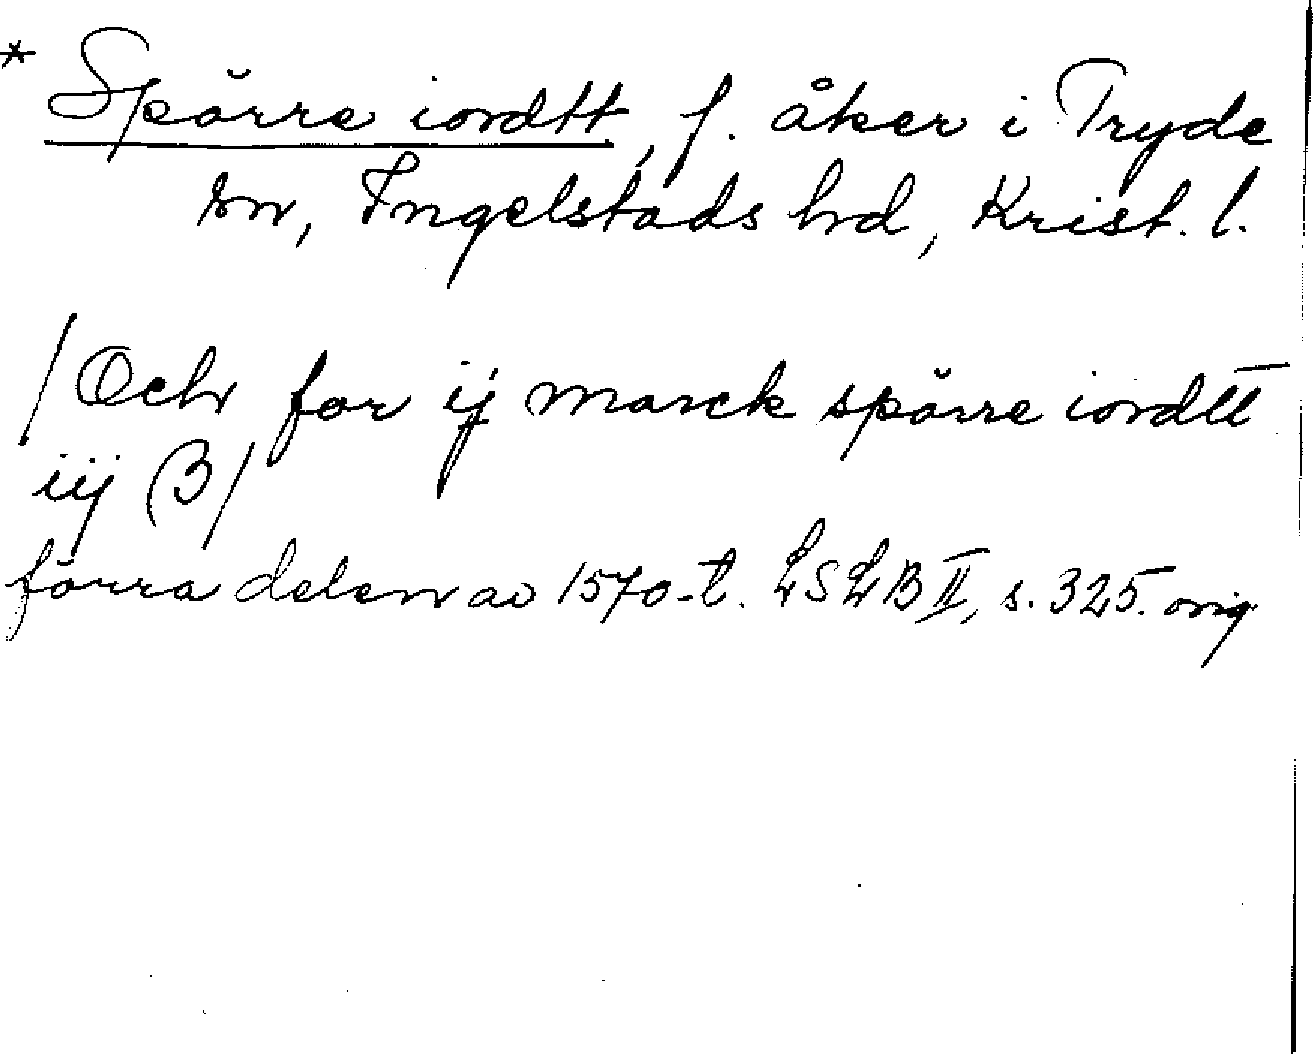 * Spörre iordtt, f. åker i Tryde
sn, Ingelstads hd, Krist. l.
/Och for ij marck spörre iordtt
iij β/
förra delen av 1570-t. LSLB II, s. 325. orig.